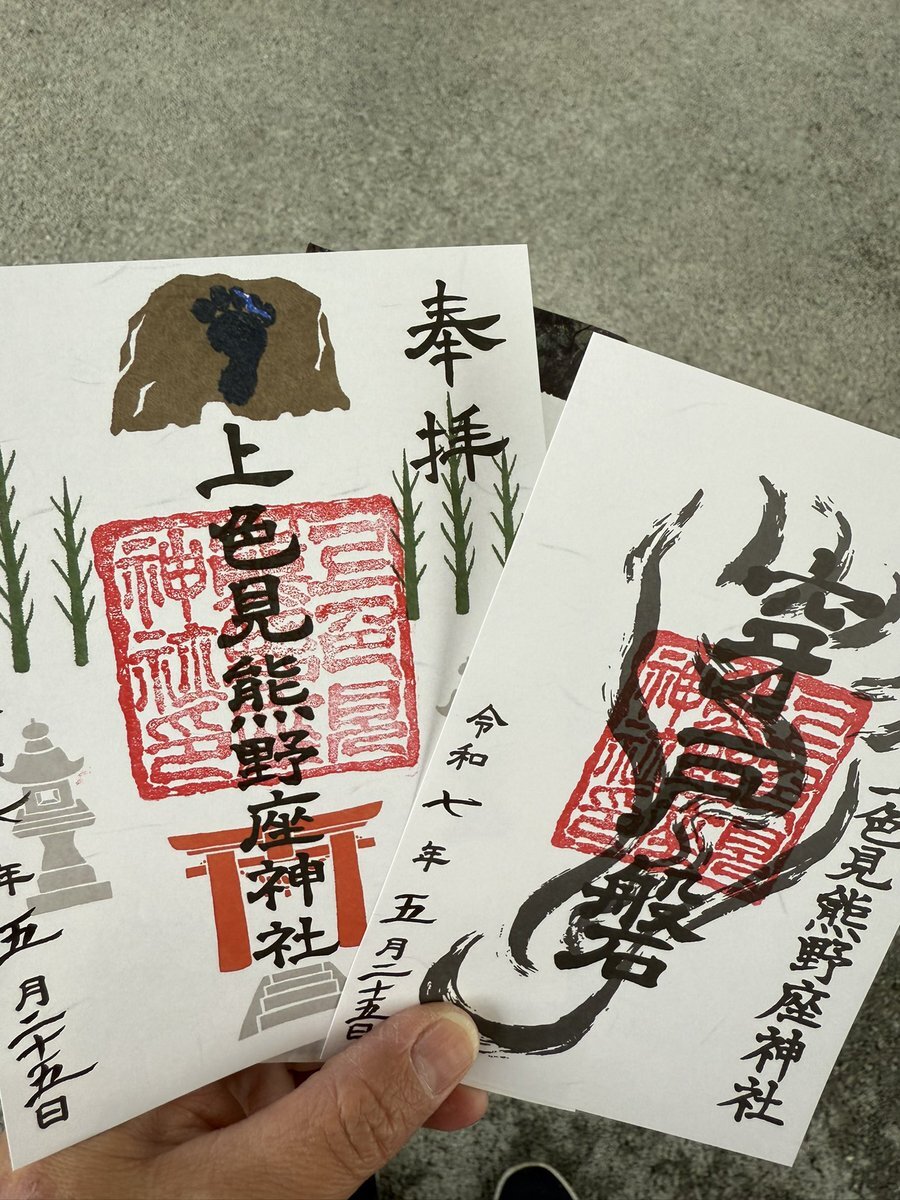 奉拝
上色見熊野座神社
上色見
神社印
年五月二十五日
上色見熊野座神社
穿戸磐
令和七年五月二十五日